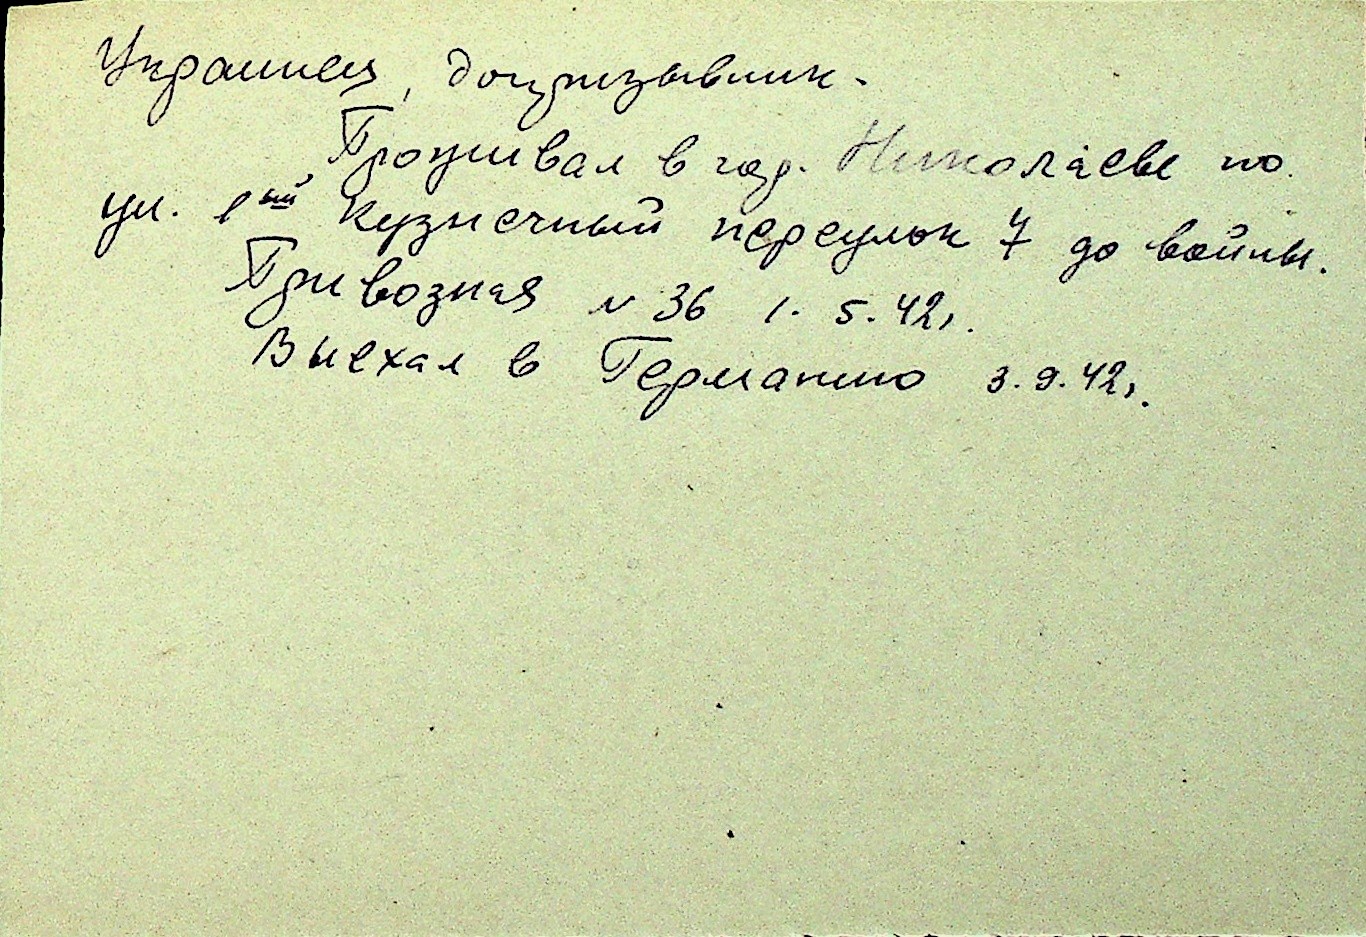 Украинец, допризывник.
Проживал в гор. Николаеве по
ул. 1ый Кузнечный переулок 7 до войны.
Привозная № 36 1. 5. 42г.
Выехал в Германию 3. 9. 42г.